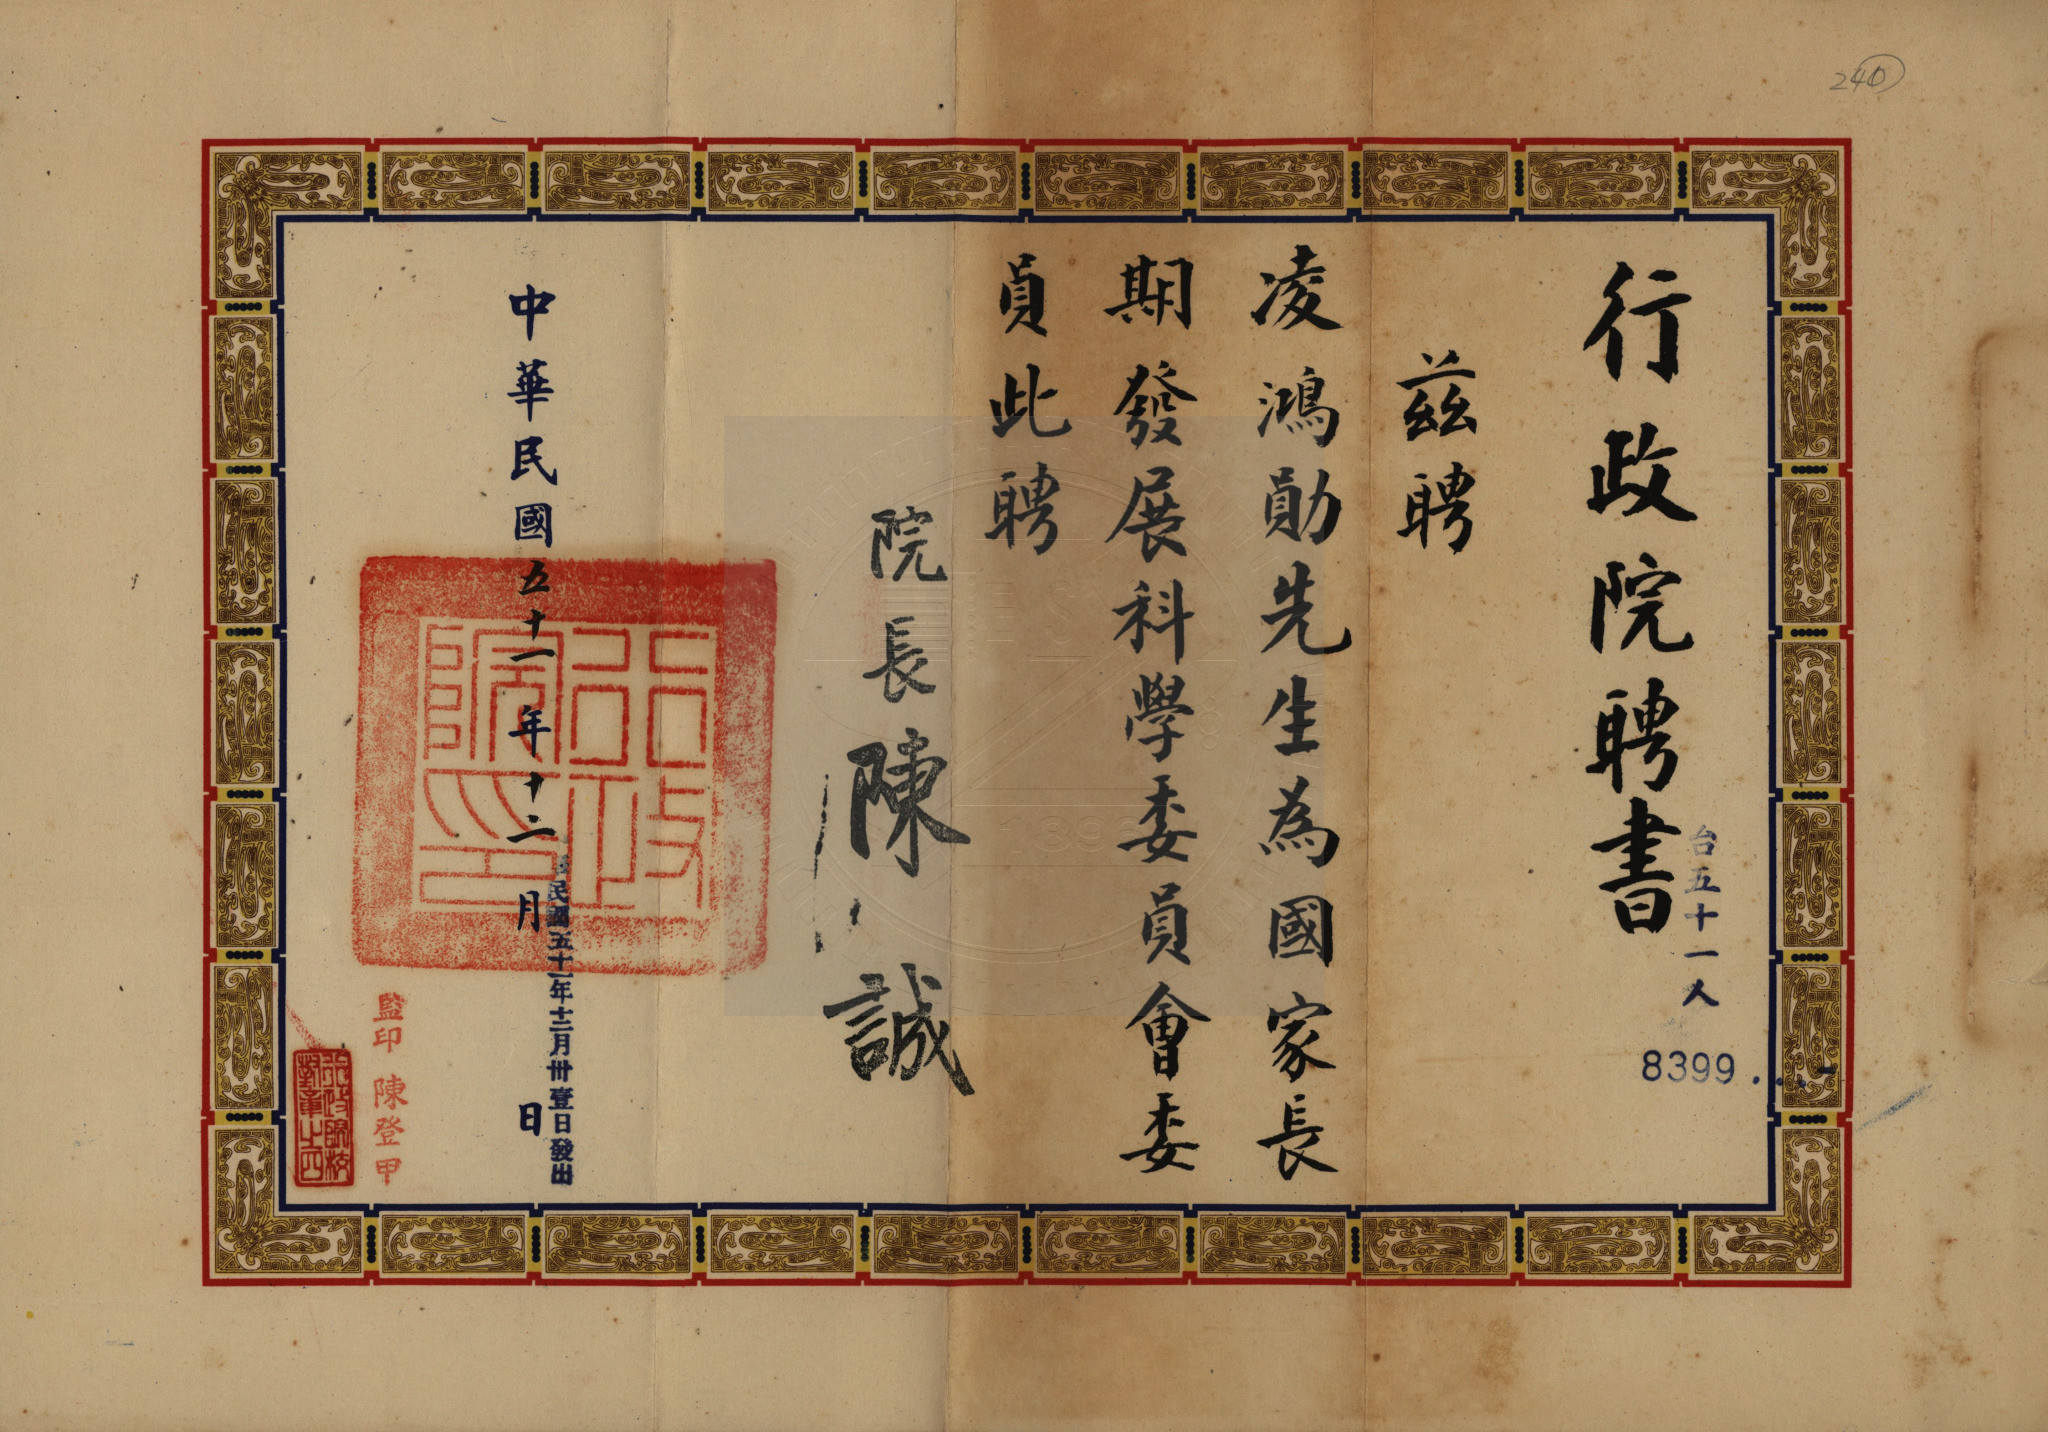 240
行政院聘書
台五十一人
8399
茲聘
凌鴻勛先生為國家長
期發展科學委員會委
員此聘
院長陳誠
中華民國五十一年十二月日
民國五十一年十二月卅壹日發出
行政院印
監印 陳登甲